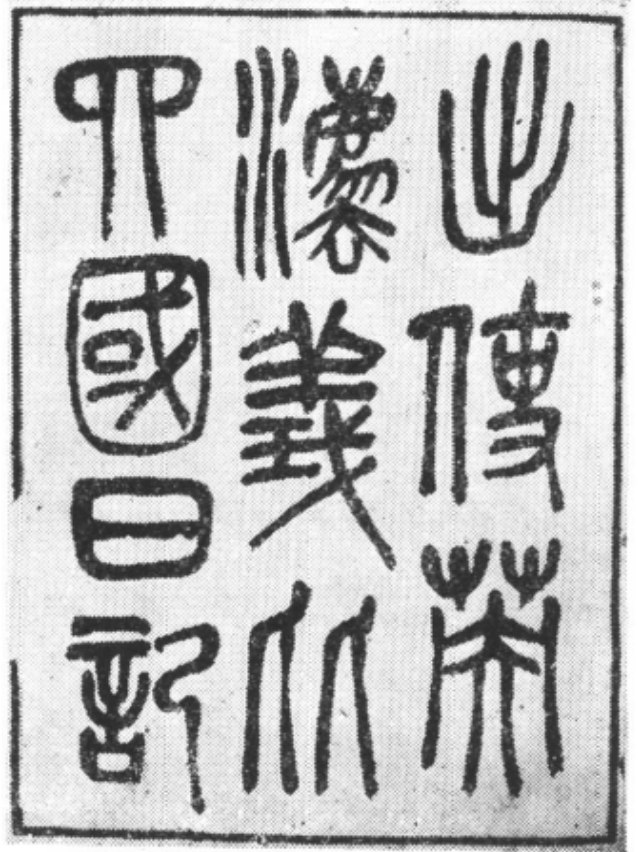 出使英
灋義比
四國日記